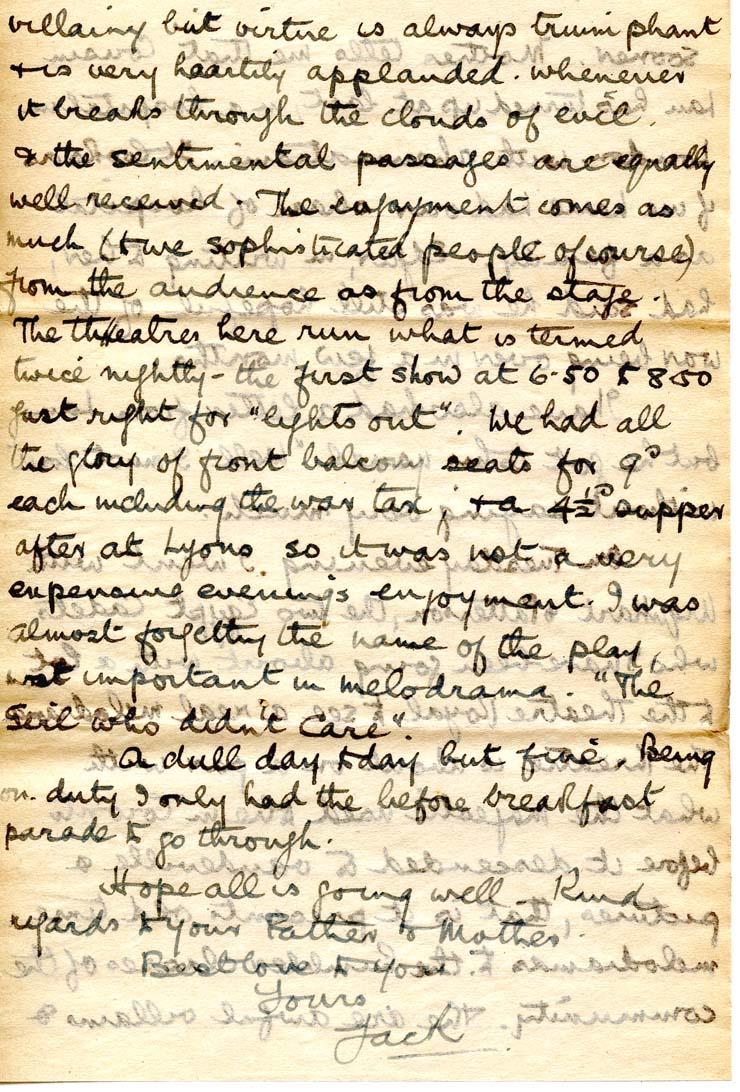 villainy but virtue is always triumphant
& is very heartily applauded. whenever
it breaks through the clouds of evil.
& the sentimental passages are equally
well received. The enjoyment comes as
much (to we sophisticated people of course)
from the audience as from the stage.
The theatres here run what is termed
twice nightly - the first show at 6.50 to 8.50
just right for "lights out". We had all
the glory of front balcony seats for 9d
each including the war tax, & a 4½d supper
after at Lyons so it was not a very
expensive evenings enjoyment. I was
almost forgetting the name of the play,
most important in melodrama. "The
Girl who didn't Care".
A dull day today but fine. Being
on duty I only had the before breakfast
parade to go through.
Hope all is going well - Kind
regards to your Father & Mother.
Best love to you
Yours
Jack